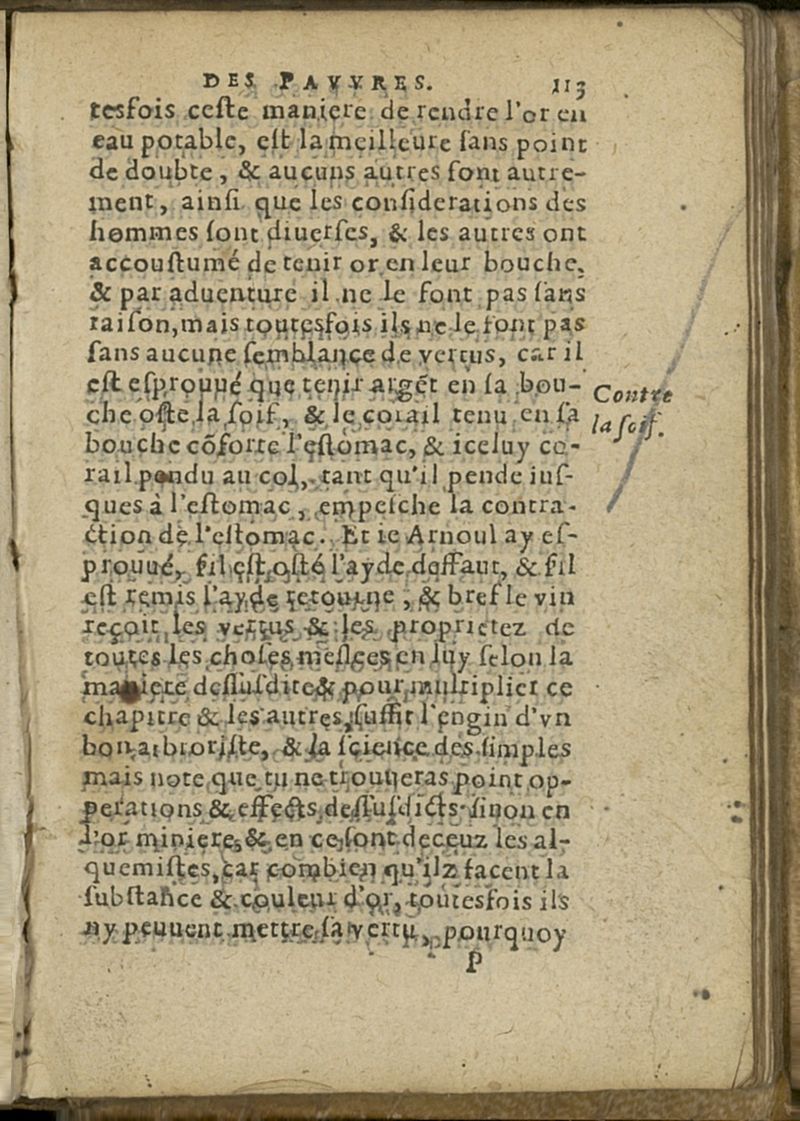 DES PAVVRES. 113
tesfois ceſte maniere de rendre l'or en
eau potable, eſt la meilleure ſans point
de doubte, & aucuns autres font autre-
ment, ainſi que les conſiderations des
hommes ſont diuerſes, & les autres ont
accouſtumé de tenir or en leur bouche,
& par aduenture il ne le font pas ſans
raiſon, mais toutesfois ils ne le font pas
ſans aucune ſemblance de vertus, car il
eſt eſprouué que tenir argẽt en ſa bou-
che oſte la ſoif, & le corail tenu en ſa
bouche cõforte l'eſtomac, & iceluy co-
rail pendu au col, tant qu'il pende iuſ-
ques à l'eſtomac, empeſche la contra-
ction de l'eſtomac. Et ie Arnoul ay eſ-
prouué, ſil eſt oſté l'ayde deffaut, & ſil
eſt remis l'ayde retourne, & bref le vin
reçoit les vertus & les proprietez de
toutes les choſes meſlees en luy ſelon la
maniere deſſuſdite & pour multiplier ce
chapitre & les autres, ſuffit l'engin d'vn
bon arboriſte, & la ſcience des ſimples
mais note que tu ne trouueras point op-
perations & effects deſſuſdicts ſinon en
l'or miniere, & en ce ſont deceuz les al-
quemiſtes, car combien qu'ilz facent la
ſubſtance & couleur d'or, toutesfois ils
ny peuuent mettre ſa vertu, pourquoy
P
Contre
la ſoif.